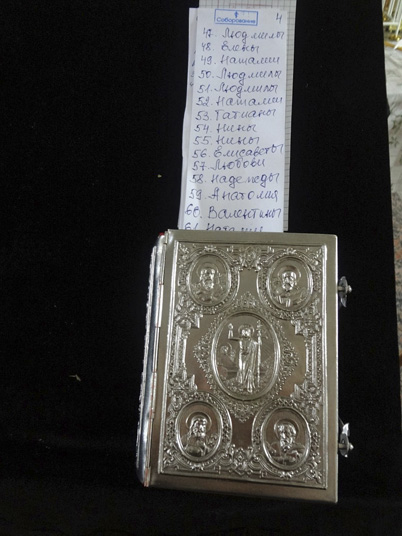 Соборование 4
47. Людмилы
48. Елены
49. Наталии
50. Людмилы
51. Людмилы
52. Наталии
53. Татианы
54. Нины
55. Нины
56. Елисаветы
57. Любови
58. Надежды
59. Анатолия
60. Валентины
61. Наталия